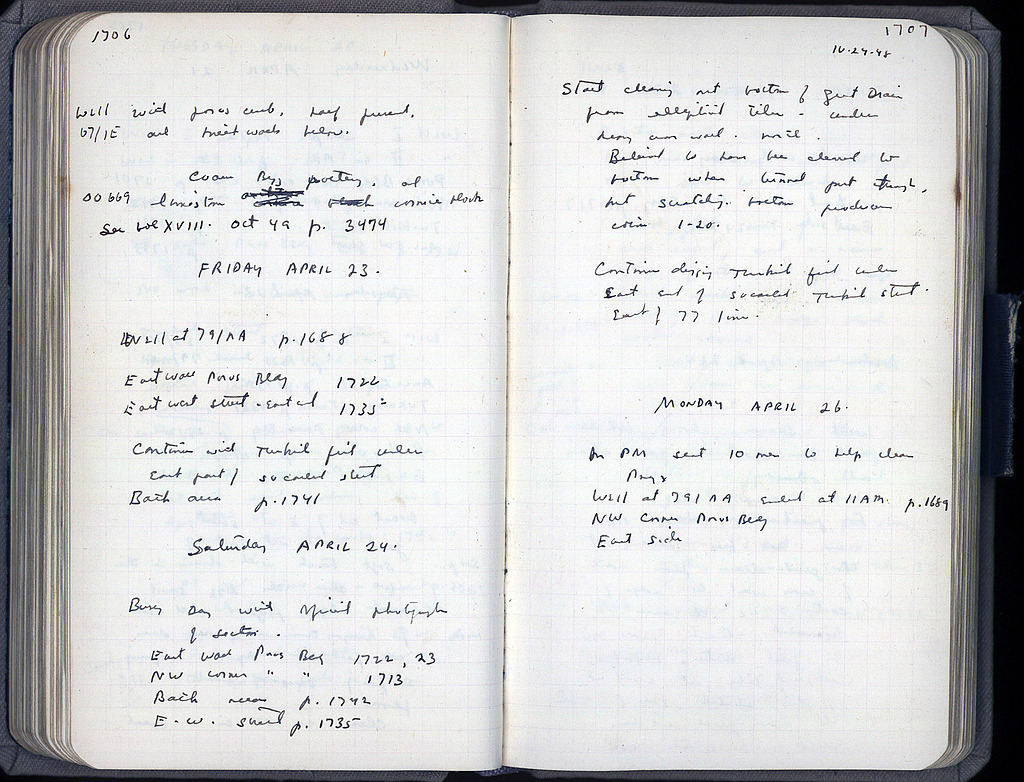 1706
Well with poros curb, half preserved.
67/ΙΕ and
Coarse Byz pottery.
OO 669 limestone cornice block
See Vol XVIII. Oct 49 p. 3474
FRIDAY APRIL 23.
Well at 79/ΛΑ p. 1688
East wall Poros Bldg 1722
East west street - East end 1735
Continue with Turkish fill under
east part of so called street
Bath area p. 1741
Saturday APRIL 24.
Busy Day with official photographs
of section.
East wall Poros Bldg 1722, 23
NW corner " " 1713
Bath p. 1742
E-W. street p. 1735
1707
10-29-48
Start cleaning out bottom of Great Drain
from elliptical tiles - under
wall.
Behind to have been cleared to
bottom when tunnel put through,
but scratching bottom produces
coins 1-20.
Continue digging Turkish fill under
East end of so called Turkish street.
East of 77 line.
MONDAY APRIL 26.
In PM sent 10 men to help clean
Pnyx
Well at 79/ΛΑ ended at 11 AM. p. 1689
NW corner Poros Bldg
East side